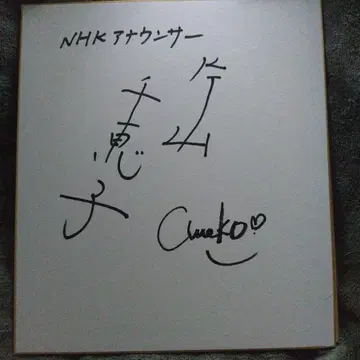 NHKアナウンサー
片山
千恵子
Chieko♡